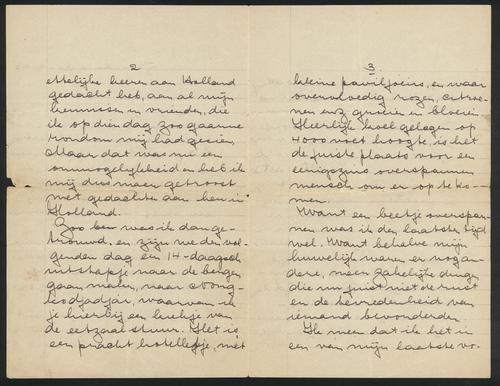 2
ettelijke keeren aan Holland
gedacht heb, aan al mijn
kennissen en vrienden, die
ik op dien dag zoo gaarne
rondom mij had gezien,
Maar dat was nu een
onmogelijkheid en heb ik
mij dus maar getroost
met gedachten aan hen in
Holland.
Zoo ben was ik dan ge-
trouwd, en zijn we den vol-
genden dag een 14-daagsch
uitstapje naar de bergen
gaan maken, naar Nong-
kodjadjar, waarvan ik
je hierbij een kiekje van
de eetzaal stuur. Het is
een pracht hotelletje, met
3.
kleine paviljoens, en waar
overvloedig rozen, citroe-
nen enz groeien en bloeien
Heerlijk koel gelegen op
4000 voet hoogte, is het
de juiste plaats voor een
eenigszins overspannen
mensch om er op te ko-
men.
Want een beetje overspan-
nen was ik den laatsten tijd
wel. Want behalve mijn
huwelijk waren er nog an-
dere, meer zakelijke dingen
die nu juist niet de rust
en de tevredenheid van
iemand bevorderden.
Ik meen dat ik het in
een van mijn laatste vo-